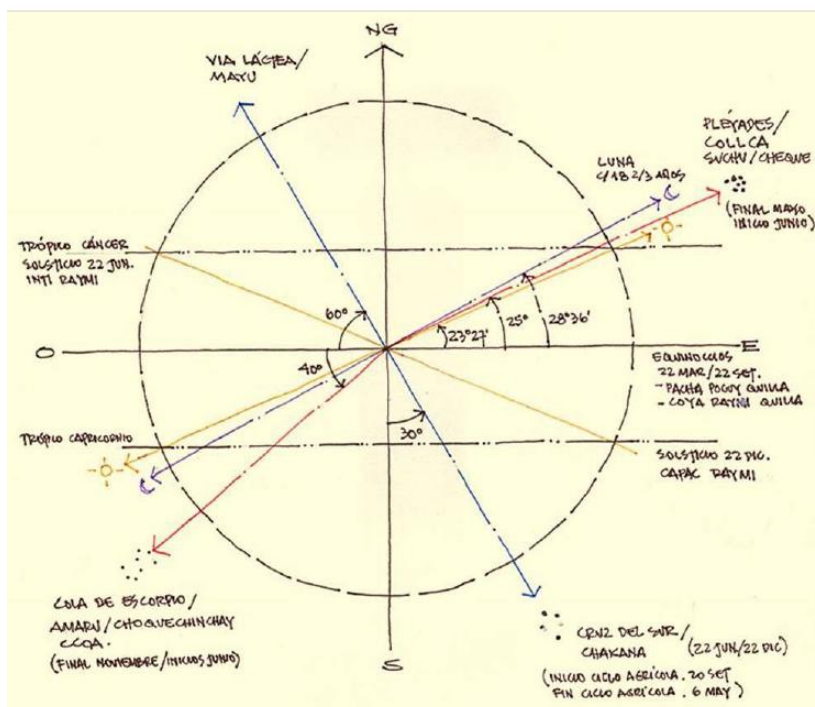 NG
VIA LÁCTEA/
MAYU
PLÉYADES/
COLLCA
SUCHU/CHEQUE
(FINAL MAYO
INICIO JUNIO)
LUNA
C/18 2/3 AÑOS
TRÓPICO CÁNCER
SOLSTICIO 22 JUN.
INTI RAYMI
60°
23°27'
25°
28°36'
O
E
40°
EQUINOCCIOS
22 MAR/22 SET.
- PACHA POCUY QUILLA
- COYA RAYMI QUILLA
30°
TRÓPICO CAPRICORNIO
SOLSTICIO 22 DIC.
CAPAC RAYMI
COLA DE ESCORPIO/
AMARU/CHOQUECHINCHAY
CCOA.
(FINAL NOVIEMBRE/INICIOS JUNIO)
S
CRUZ DEL SUR/
CHAKANA
(22 JUN/22 DIC)
(INICIO CICLO AGRÍCOLA. 20 SET
FIN CICLO AGRÍCOLA. 6 MAY)